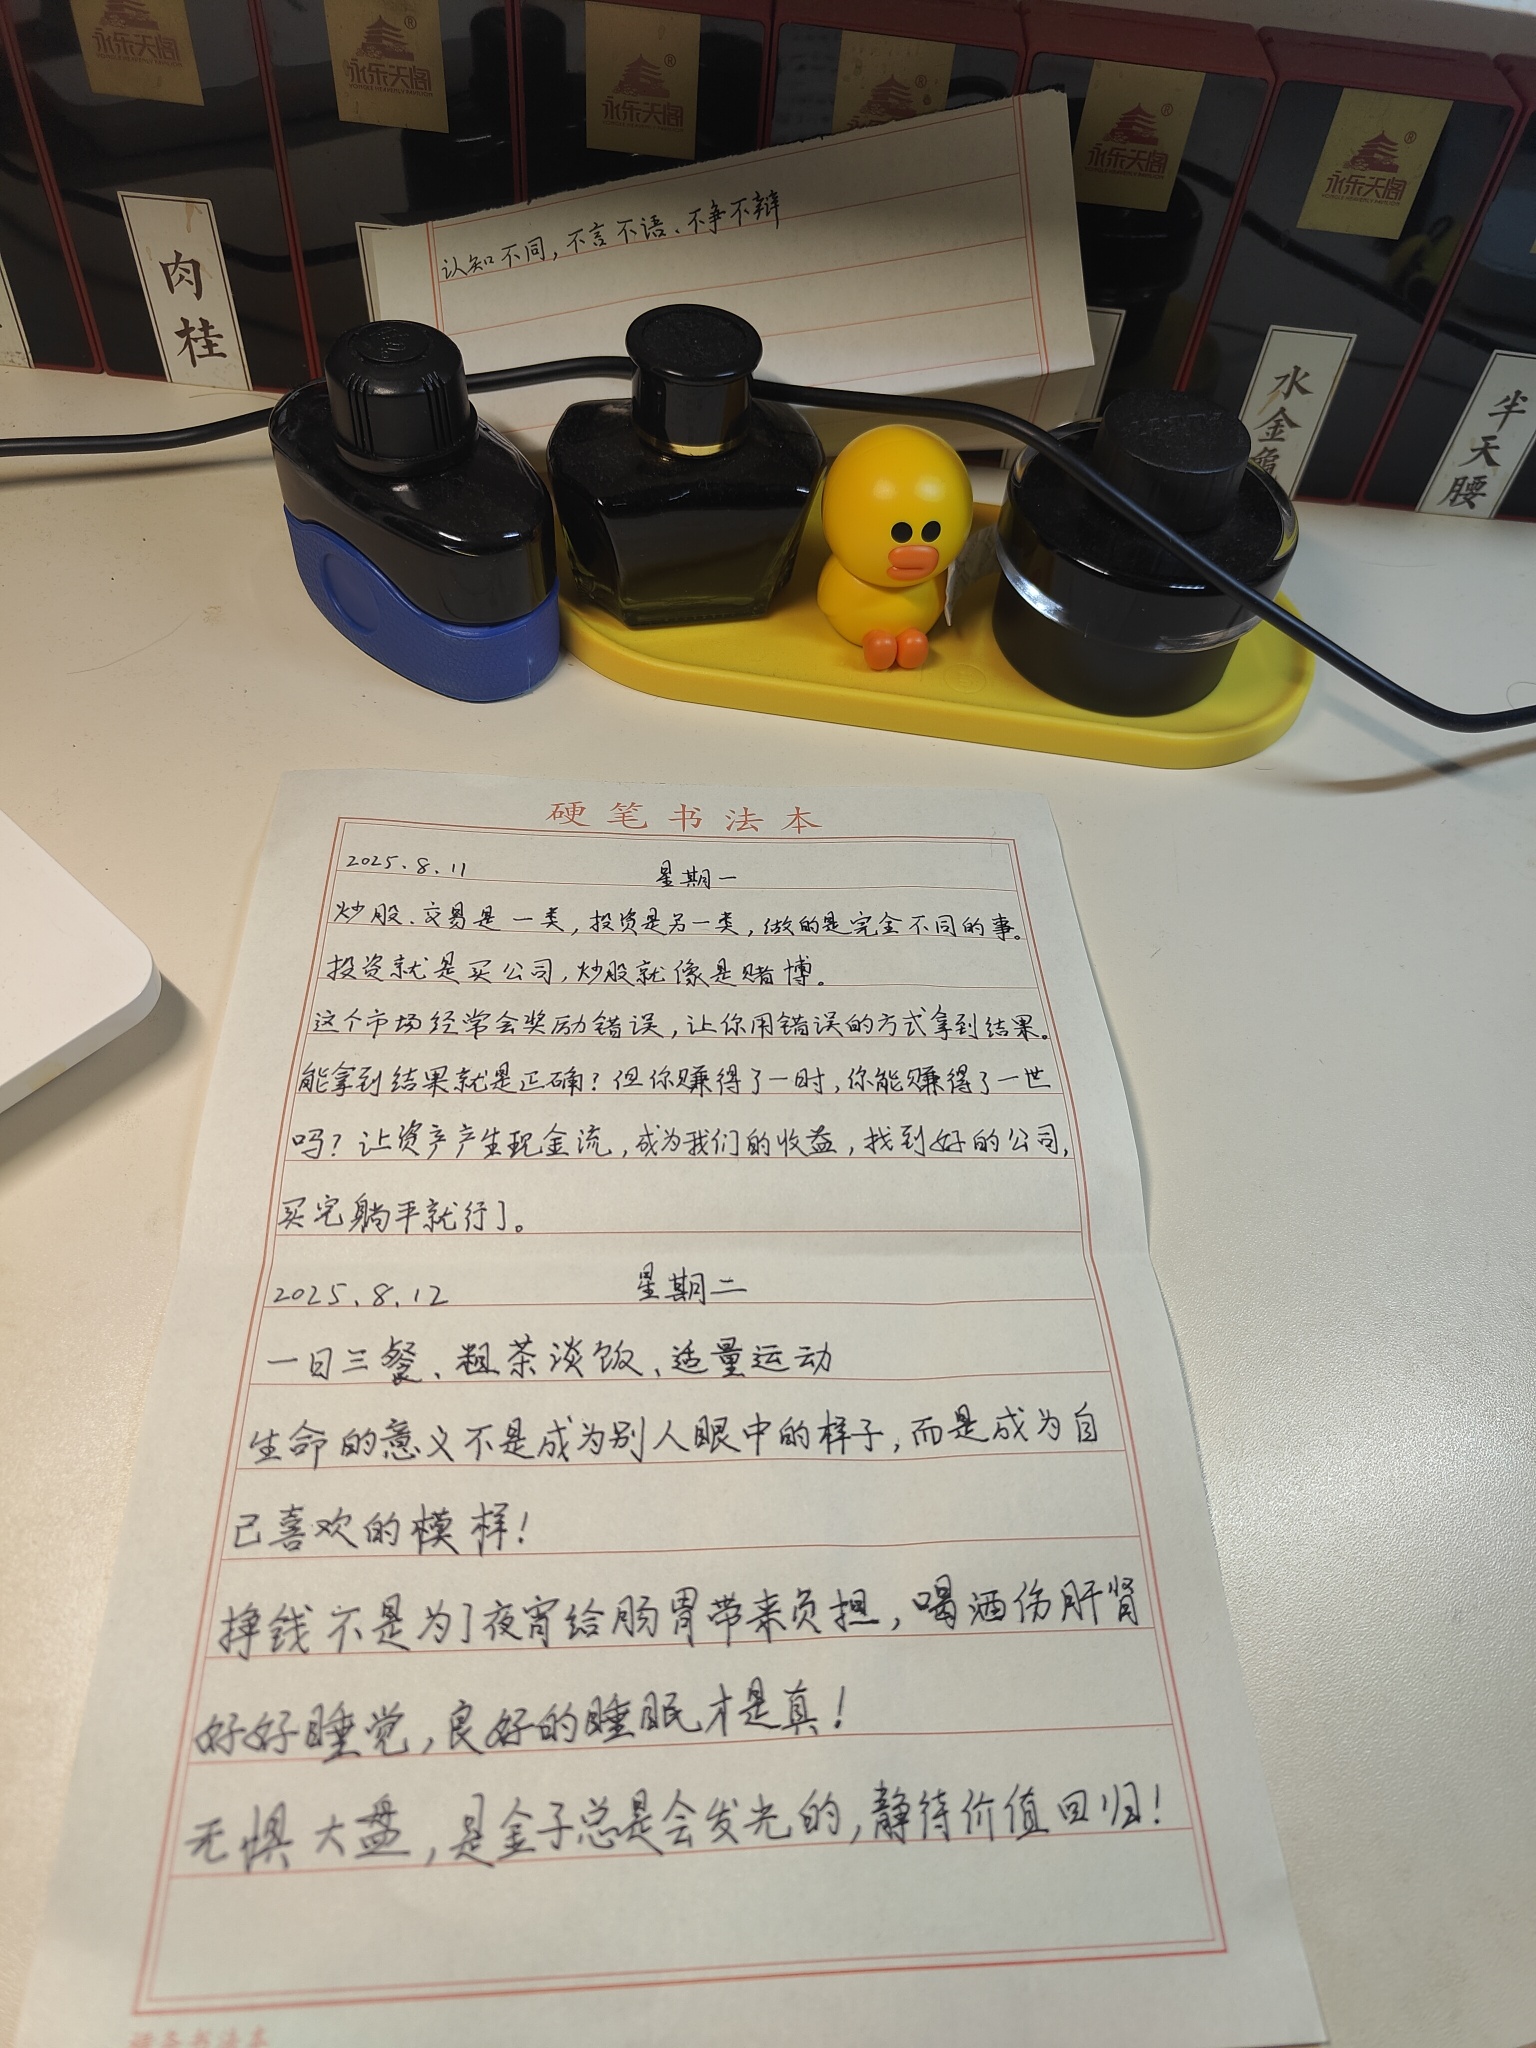 永乐天阁
YONGLE HEAVENLY PAVILION
永乐天阁
YONGLE HEAVENLY PAVILION
永乐天阁
YONGLE HEAVENLY PAVILION
永乐天阁
YONGLE HEAVENLY PAVILION
永乐天阁
YONGLE HEAVENLY PAVILION
肉桂
认知不同，不言不语、不争不辩
水金龟
半天腰
硬笔书法本
2025.8.11 星期一
炒股、交易是一类，投资是另一类，做的是完全不同的事。
投资就是买公司，炒股就像是赌博。
这个市场经常会奖励错误，让你用错误的方式拿到结果。
能拿到结果就是正确？但你赚得了一时，你能赚得了一世
吗？让资产产生现金流，成为我们的收益，找到好的公司，
买完躺平就行了。
2025.8.12 星期二
一日三餐、粗茶淡饭、适量运动
生命的意义不是成为别人眼中的样子，而是成为自
己喜欢的模样！
挣钱不是为了夜宵给肠胃带来负担，喝酒伤肝肾
好好睡觉，良好的睡眠才是真！
无惧大盘，是金子总是会发光的，静待价值回归！
硬笔书法本